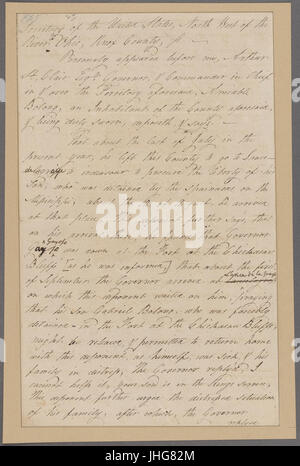 Territory of the United States, North West of the
River Ohio, Knox County, ss.
Personally appeared before me, Arthur
St. Clair Esqr. Governor, & Commander in Chief
in & over the Territory aforesaid, Amiable
Bolong, an Inhabitant of the County aforesaid,
& being duly sworn, deposeth & saith
That about the last of July, in the
present year, he left this County to go to
to endeavour to procure the liberty of his
Son, who was detained by the Spaniards on the
Mississippi; the he arrived
at that place. This deponent further says, that
on his arrival there, he that Governor
Gayoso was down at the Fort at the Chickasaw
Bluffs (as he was informed) that about the first
of September the Governor arrived at
on which this deponent waited on him, praying
that his Son Gabriel Bolong, who was forcibly
detained in the Fort at the Chickasaw Bluffs,
might be released, & permitted to return home
with this deponent, as himself was sick, & his
family in distress, the Governor replied I
cannot help it, your Son is in the Kings Service,
this deponent further urged the distressed situation
of his family, after which, the Governor
replied
alamy
JHG82M